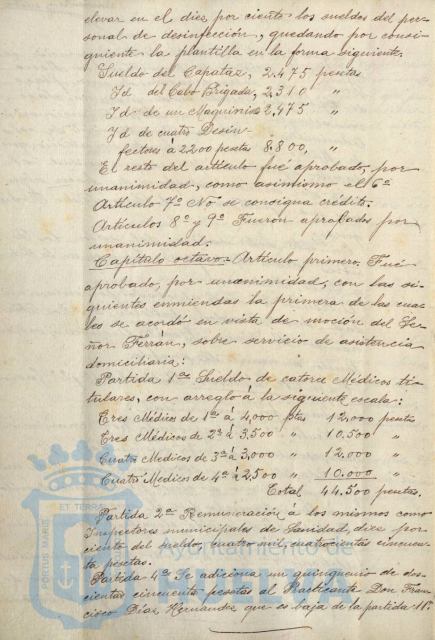 elevar en el diez por ciento los sueldos del per-
sonal de desinfección, quedando por consi-
guiente la plantilla en la forma siguiente.
Sueldo del Capataz, 2.475 pesetas
Id del Cabo Brigada, 2,310 "
Id de un Maquinista 2,475 "
Id de cuatro Desin-
fectores á 2200 pesetas 8.800, "
El resto del artículo fué aprobado, por
unanimidad, como asimismo el 6º
Artículo 7º No se consigna crédito.
Artículos 8º y 9º Fueron aprobados por
unanimidad.
Capítulo octavo. Artículo primero. Fué
aprobado, por unanimidad, con las si-
guientes enmiendas la primera de las cua-
les se acordó en vista de moción del Se-
ñor Ferrán, sobre servicio de asistencia
domiciliaria:
Partida 1ª Sueldo de catorce Médicos ti-
tulares, con arreglo á la siguiente escala:
Tres Médicos de 1ª á 4,000 ptas 12,000 pesetas
Tres Médicos de 2ª á 3,500 " 10,500 "
Cuatro Médicos de 3ª á 3,000 " 12,000 "
Cuatro Médicos de 4ª á 2,500 " 10,000 "
Total 44,500 pesetas.
Partida 2ª Remuneración á los mismos como
Inspectores municipales de Sanidad, diez por
ciento del sueldo, cuatro mil cuatrocientas cincuen-
ta pesetas.
Partida 4ª Se adiciona un quinquenio de dos-
cientas cincuenta pesetas al Practicante Don Fran-
cisco Díaz Hernandez que es baja de la partida 11ª
ET TERRAE
PORTUS MARIS
Ayuntamiento de